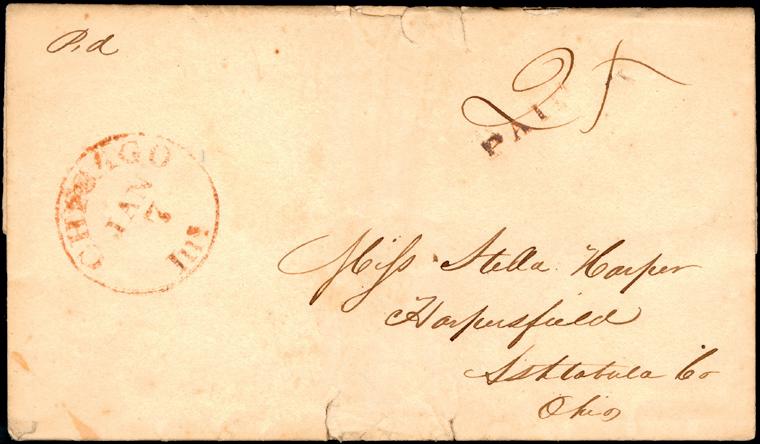 Pd
25
PAID
CHICAGO Ill.
JAN
7
Miss Stella Harper
Harpersfield
Ashtabula Co
Ohio